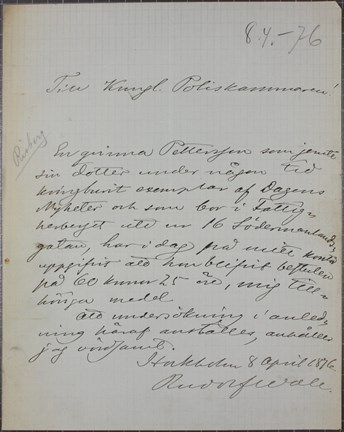 8.4.-76
Till Kungl. Poliskammaren!
En qvinna Pettersson som jemte
sin dotter under någon tid
kringburit exemplar af Dagens
Nyheter och som bor i Fattig-
herberget uti nr 16 Södermanlands-
gatan, har i dag på mitt kontor
uppgifvit att hon blifvit bestulen
på 60 kronor 25 öre, mig till-
höriga medel.
Att undersökning i anled-
ning häraf anställes, anhåller
jag vördsamt.
Stockholm 8 April 1876.
Rudolf Wall.